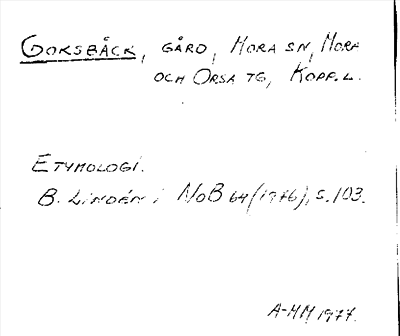 GOKSBÄCK, GÅRD, MORA SN, MORA
OCH ORSA TG, KOPP. L.
ETYMOLOGI.
B. LINDÉN i NoB 64 (1976), s. 103.
A-MM 1977.